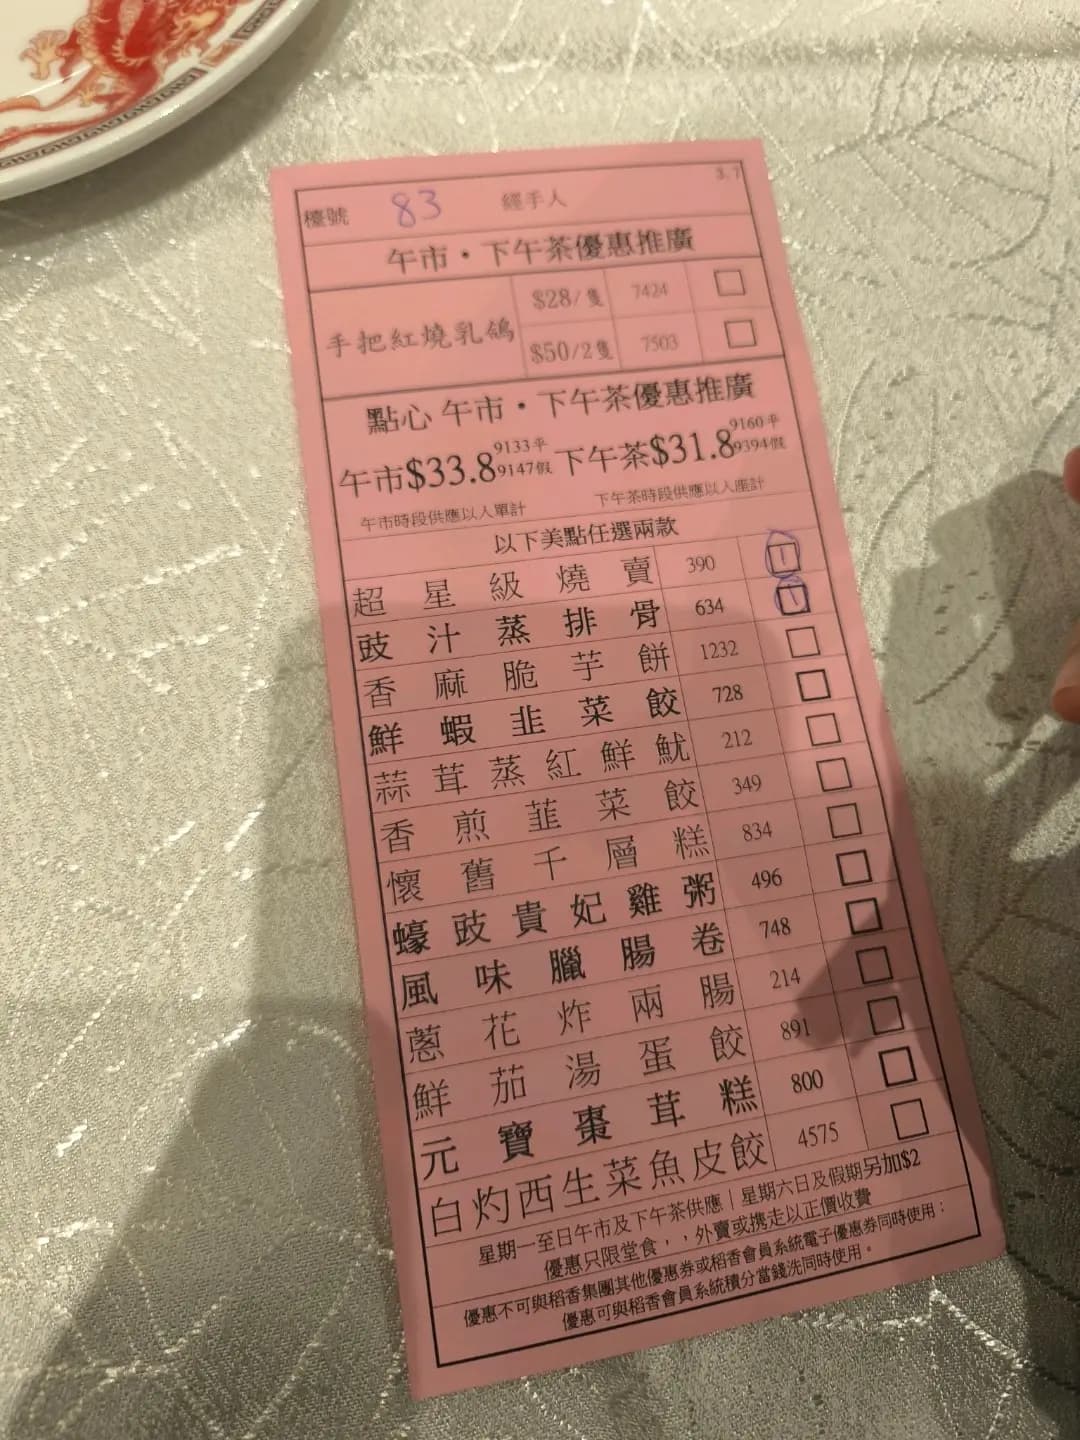 檯號 83 經手人
午市·下午茶優惠推廣
手把紅燒乳鴿 $28/隻 7424
$50/2隻 7503
點心 午市·下午茶優惠推廣
午市$33.8 9133平 9147假 下午茶$31.8 9160平 9394假
午市時段供應以入單計 下午茶時段供應以入座計
以下美點任選兩款
超星級燒賣 390 1
豉汁蒸排骨 634 1
香麻脆芋餅 1232
鮮蝦韭菜餃 728
蒜茸蒸紅鮮魷 212
香煎韮菜餃 349
懷舊千層糕 834
蠔豉貴妃雞粥 496
風味臘腸卷 748
蔥花炸兩腸 214
鮮茄湯蛋餃 891
元寶棗茸糕 800
白灼西生菜魚皮餃 4575
星期一至日午市及下午茶供應｜星期六日及假期另加$2
優惠只限堂食，，外賣或携走以正價收費
優惠不可與稻香集團其他優惠券或稻香會員系統電子優惠券同時使用：
優惠可與稻香會員系統積分當錢洗同時使用。